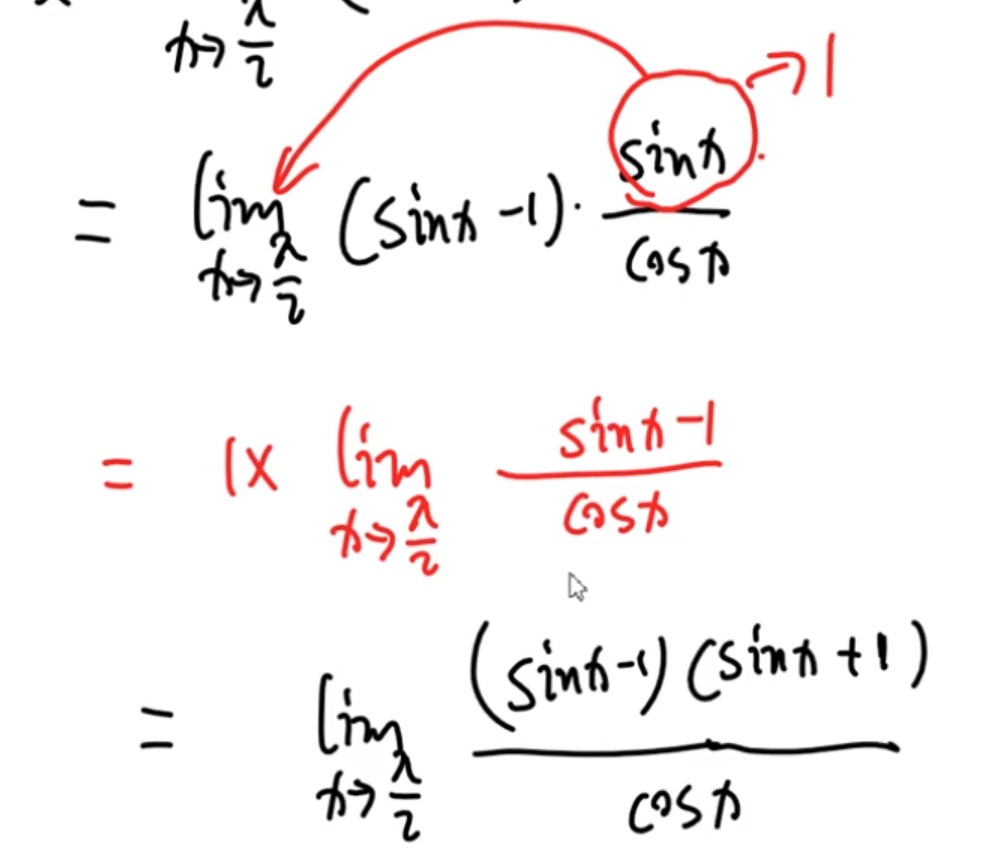 x→π/2
= lim x→π/2 (sinx -1)· sinx/cosx →1
= 1× lim x→π/2 sinx-1/cosx
= lim x→π/2 (sinx-1)(sinx+1)/cosx